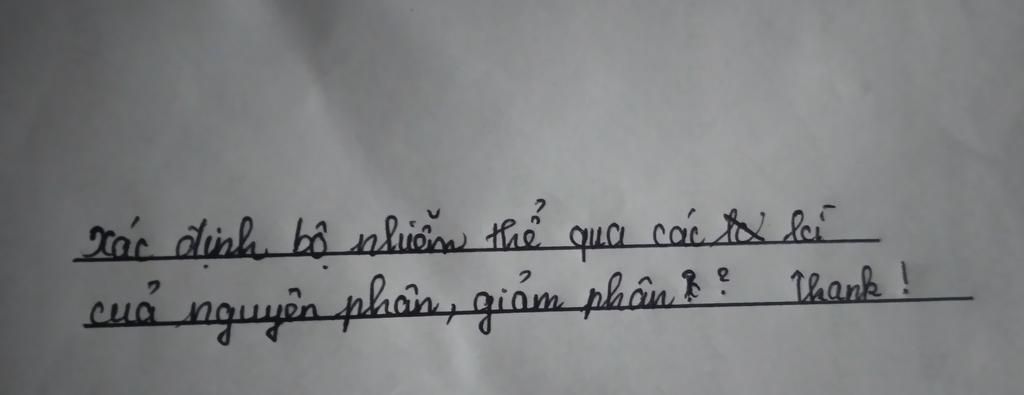 xác định bộ nhiễm thể qua các kì
cuả nguyên phân, giảm phân ? Thank !